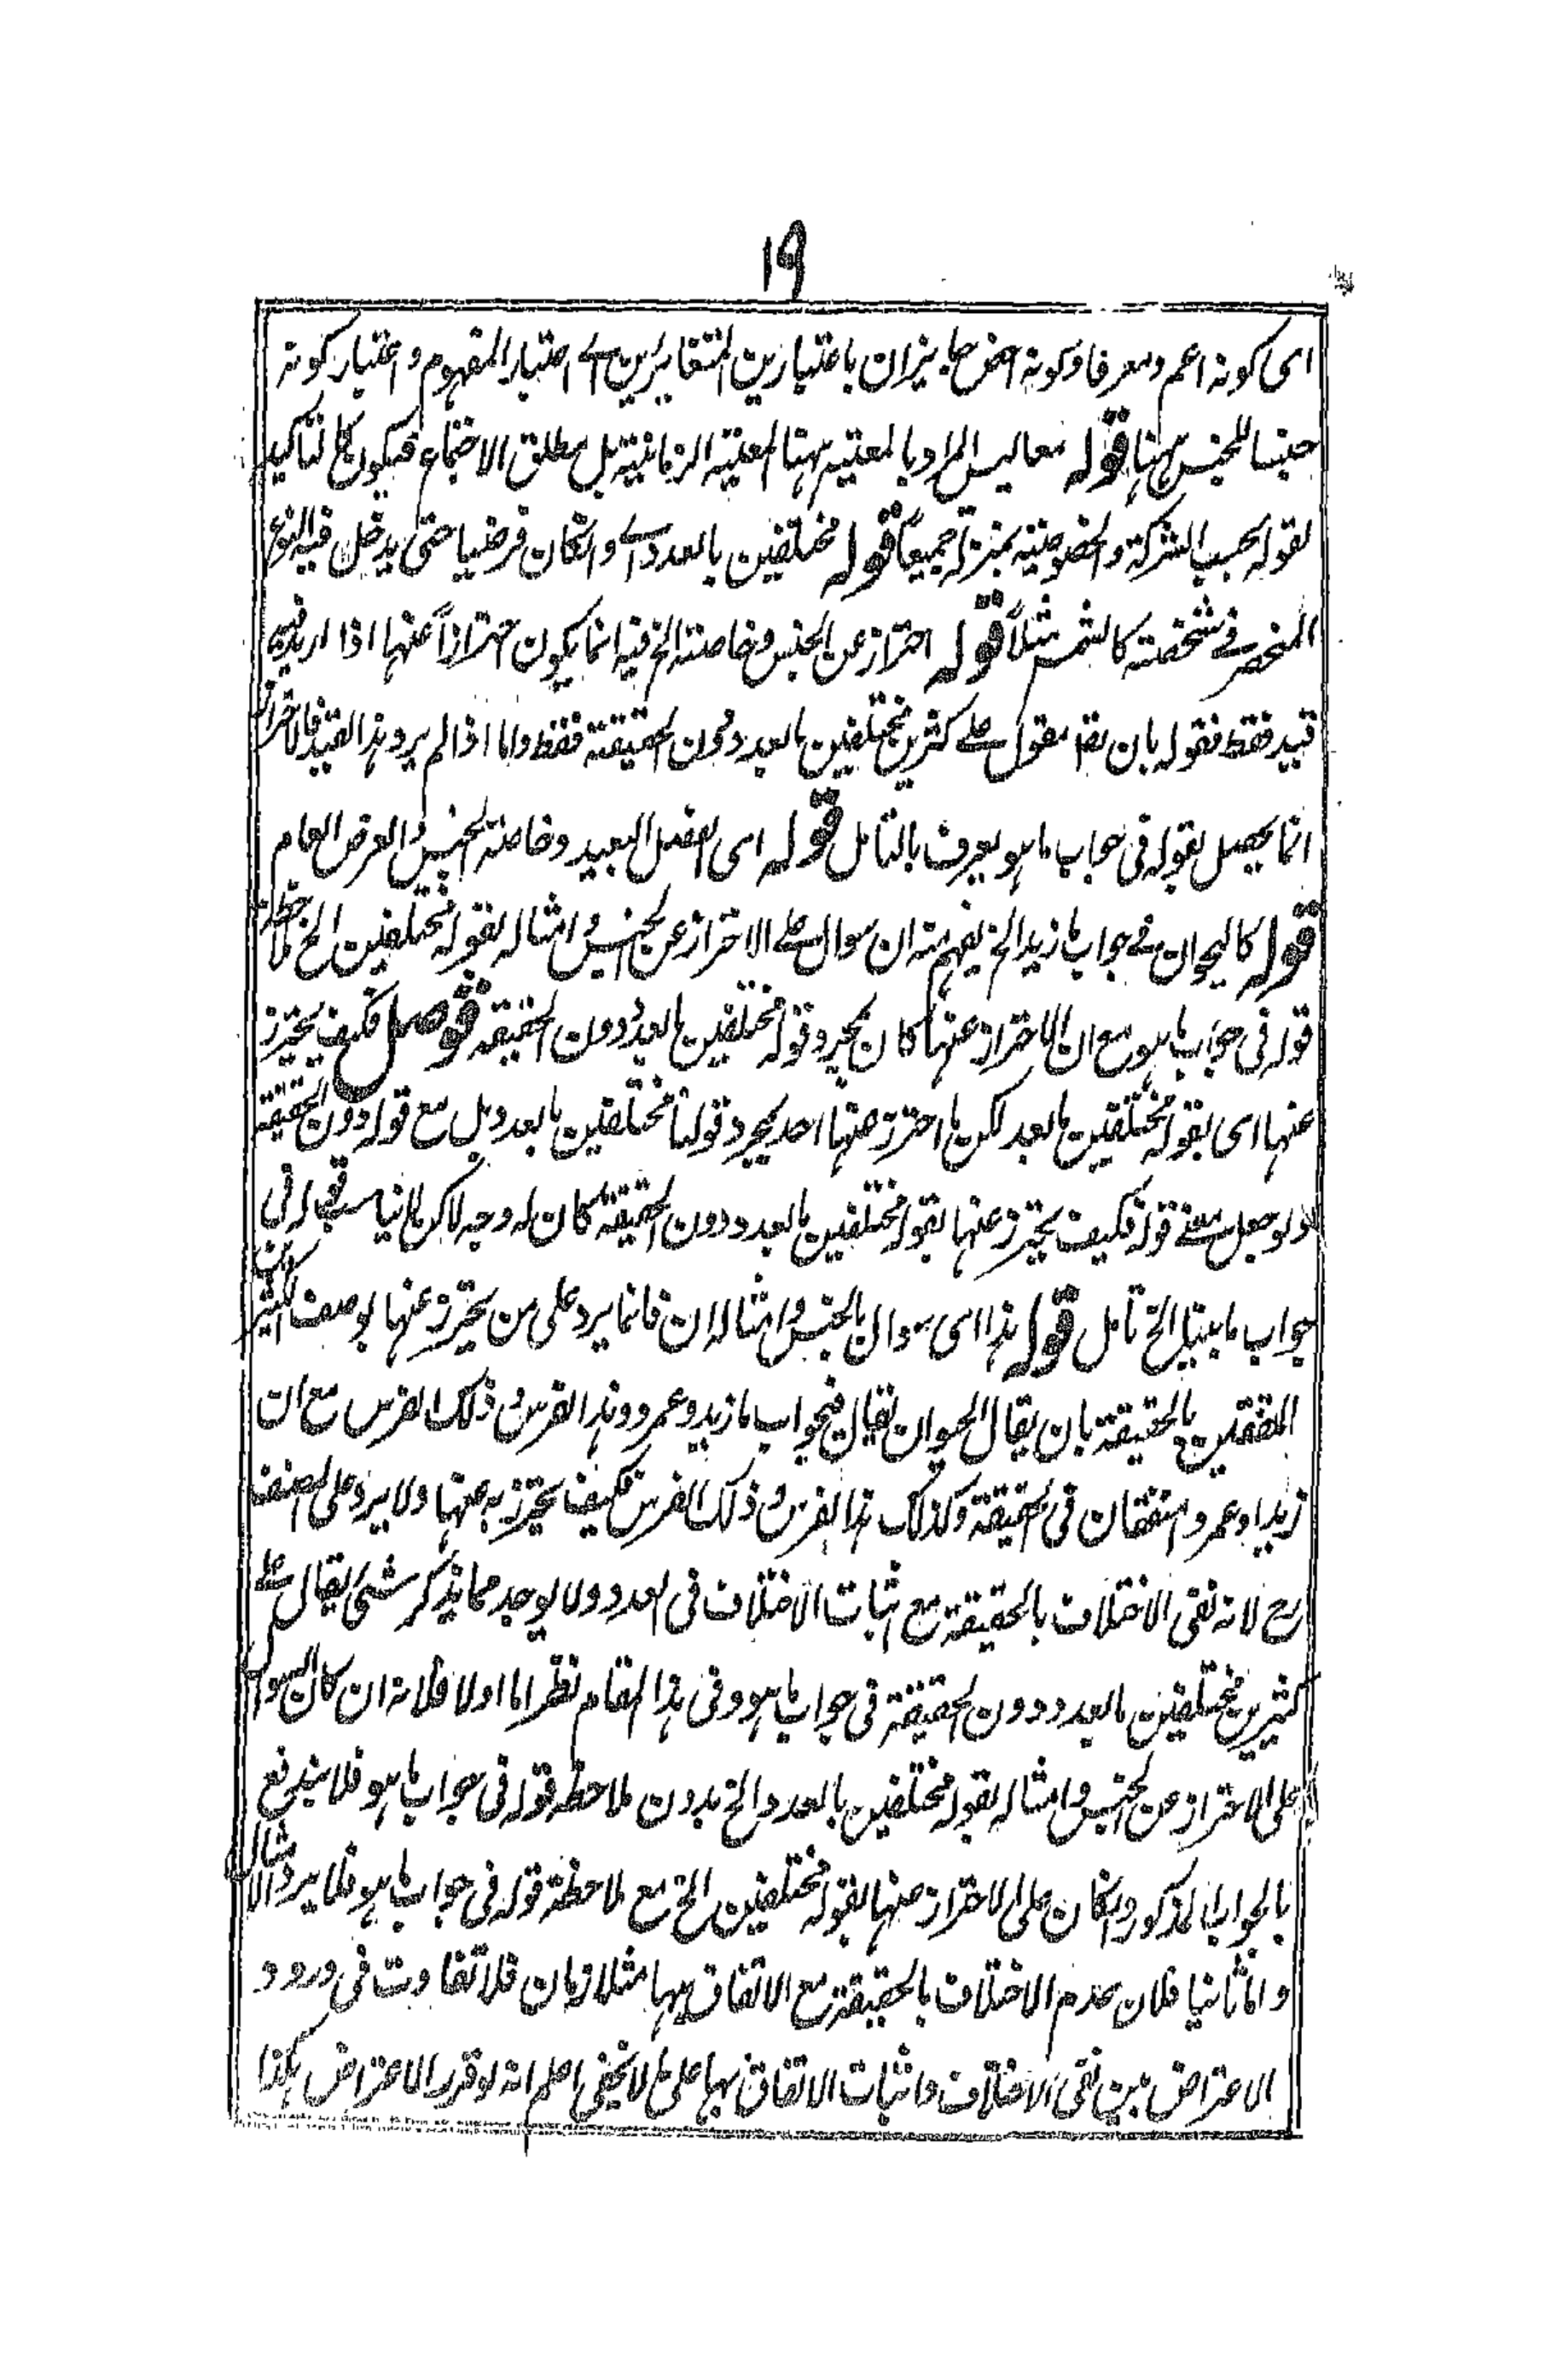 ١٩
اى كونه اعم ومعرفا وكونه اخص جايزان باعتبارين المتغايرين اى اعتبار المفهوم و اعتبار كونه
جنسا للجنس ههنا قوله معا ليس المراد بالمعية ههنا المعية الزمانية بل مطلق الاجتماع فيكون كالتاكيد
لقوله بحسب الشركة والخصوصية بمنزلة جميعاً قوله مختلفين بالعدد اى وانكان فرضيا حتى يدخل فيه النوع
المنحصر فى شخصه كالشمس مثلاً قوله احتراز عن الجنس وخاصته الخ فيه انما يكون احترازاً عنها اذا اريد فيه
قيد فقط فقوله بان يقا مقول على كثيرين مختلفين بالعدد دون الحقيقة فقط واما اذا لم يرد هذا القيد فالاحتراز
انما يحصل بقوله فى جواب ما هو يعرف بالتامل قوله اى الفصل البعيد وخاصة الجنس والعرض العام
قوله كالحيوان فى جواب ما زيد الخ يفهم منه ان سوال على الاحتراز عن الجنس و امثاله بقوله مختلفين الخ ملاحظة
قوله فى جواب ما هو مع ان الاحتراز عنها كان بمجرد قوله مختلفين بالعدد دون الحقيقة فوصل فكيف يحترز
عنها اى بقوله مختلفين بالعدد لكن ما احترز عنها احد بمجرد قولنا مختلفين بالعدد بل مع قوله دون الحقيقة
ولو جعل معنى قوله فكيف يحترز عنها بقوله مختلفين بالعدد دون الحقيقة كان له وجه لاكن لا يناسب قوله فى
جواب ما بيتيل الخ تأمل قوله هذا اى سوال بالجنس و امثاله ان فانما يرد على من يحترز عنها بوصف الكثيرين
المتفقين بالحقيقة بان يقال الحيوان يقال فى جواب ما زيد وعمرو وهذا الفرس و ذلك الفرس مع ان
زيدا وعمروا متفقان فى الحقيقة وكذلك هذا الفرس و ذلك الفرس فكيف يحترز به عنها ولا يرد على المصنف
رح لانه نفى الاختلاف بالحقيقة مع اثبات الاختلاف فى العدد ولا يوجد مما يذكر شئ يقال على
كثيرين مختلفين بالعدد دون الحقيقة فى جواب ما هو وفى هذا المقام نظر اما اولا فلانه ان كان السوال
على الاحتراز عن الجنس و امثاله بقوله مختلفين بالعدد الخ بدون ملاحظة قوله فى جواب ما هو فلا يندفع
بالجواب المذكور وانكان على الاحتراز عنها بقوله مختلفين الخ مع ملاحظة قوله فى جواب ما هو فلا يرد الامثال
واما ثانيا فلان عدم الاختلاف بالحقيقة مع الاتفاق بها متلازمان فلا تفاوت فى ورود
الاعتراض بين نفى الاختلاف واثبات الاتفاق بها على ما لا يخفى اعلم انه لو قرر الاعتراض هكذا